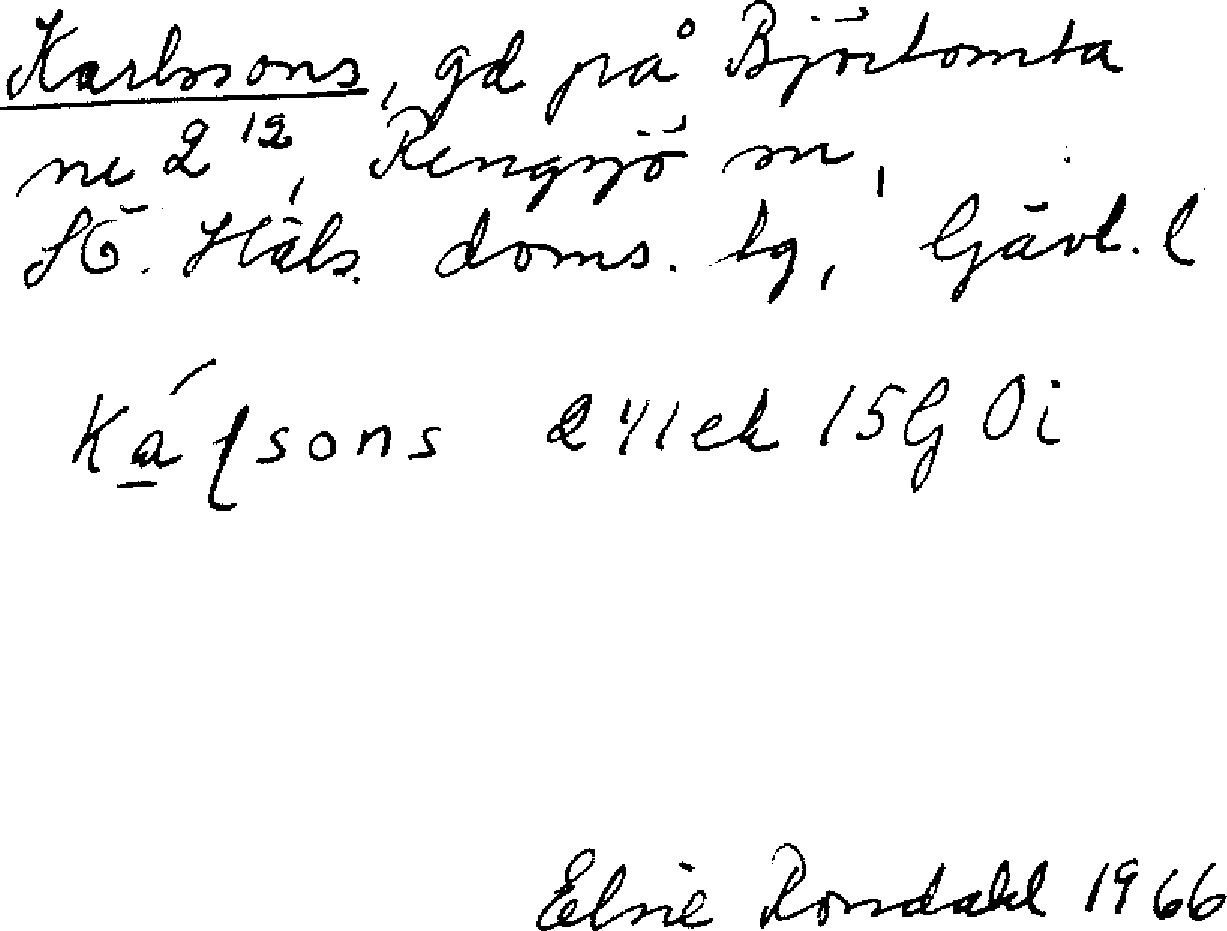 Karlssons, gd på Björtomta
nr 2¹², Rengsjö sn,
SÖ. Häls. doms. tg, Gävl. l
Ká̱ɭsons 2 ek 15G Oi
Elsie Rondahl 1966